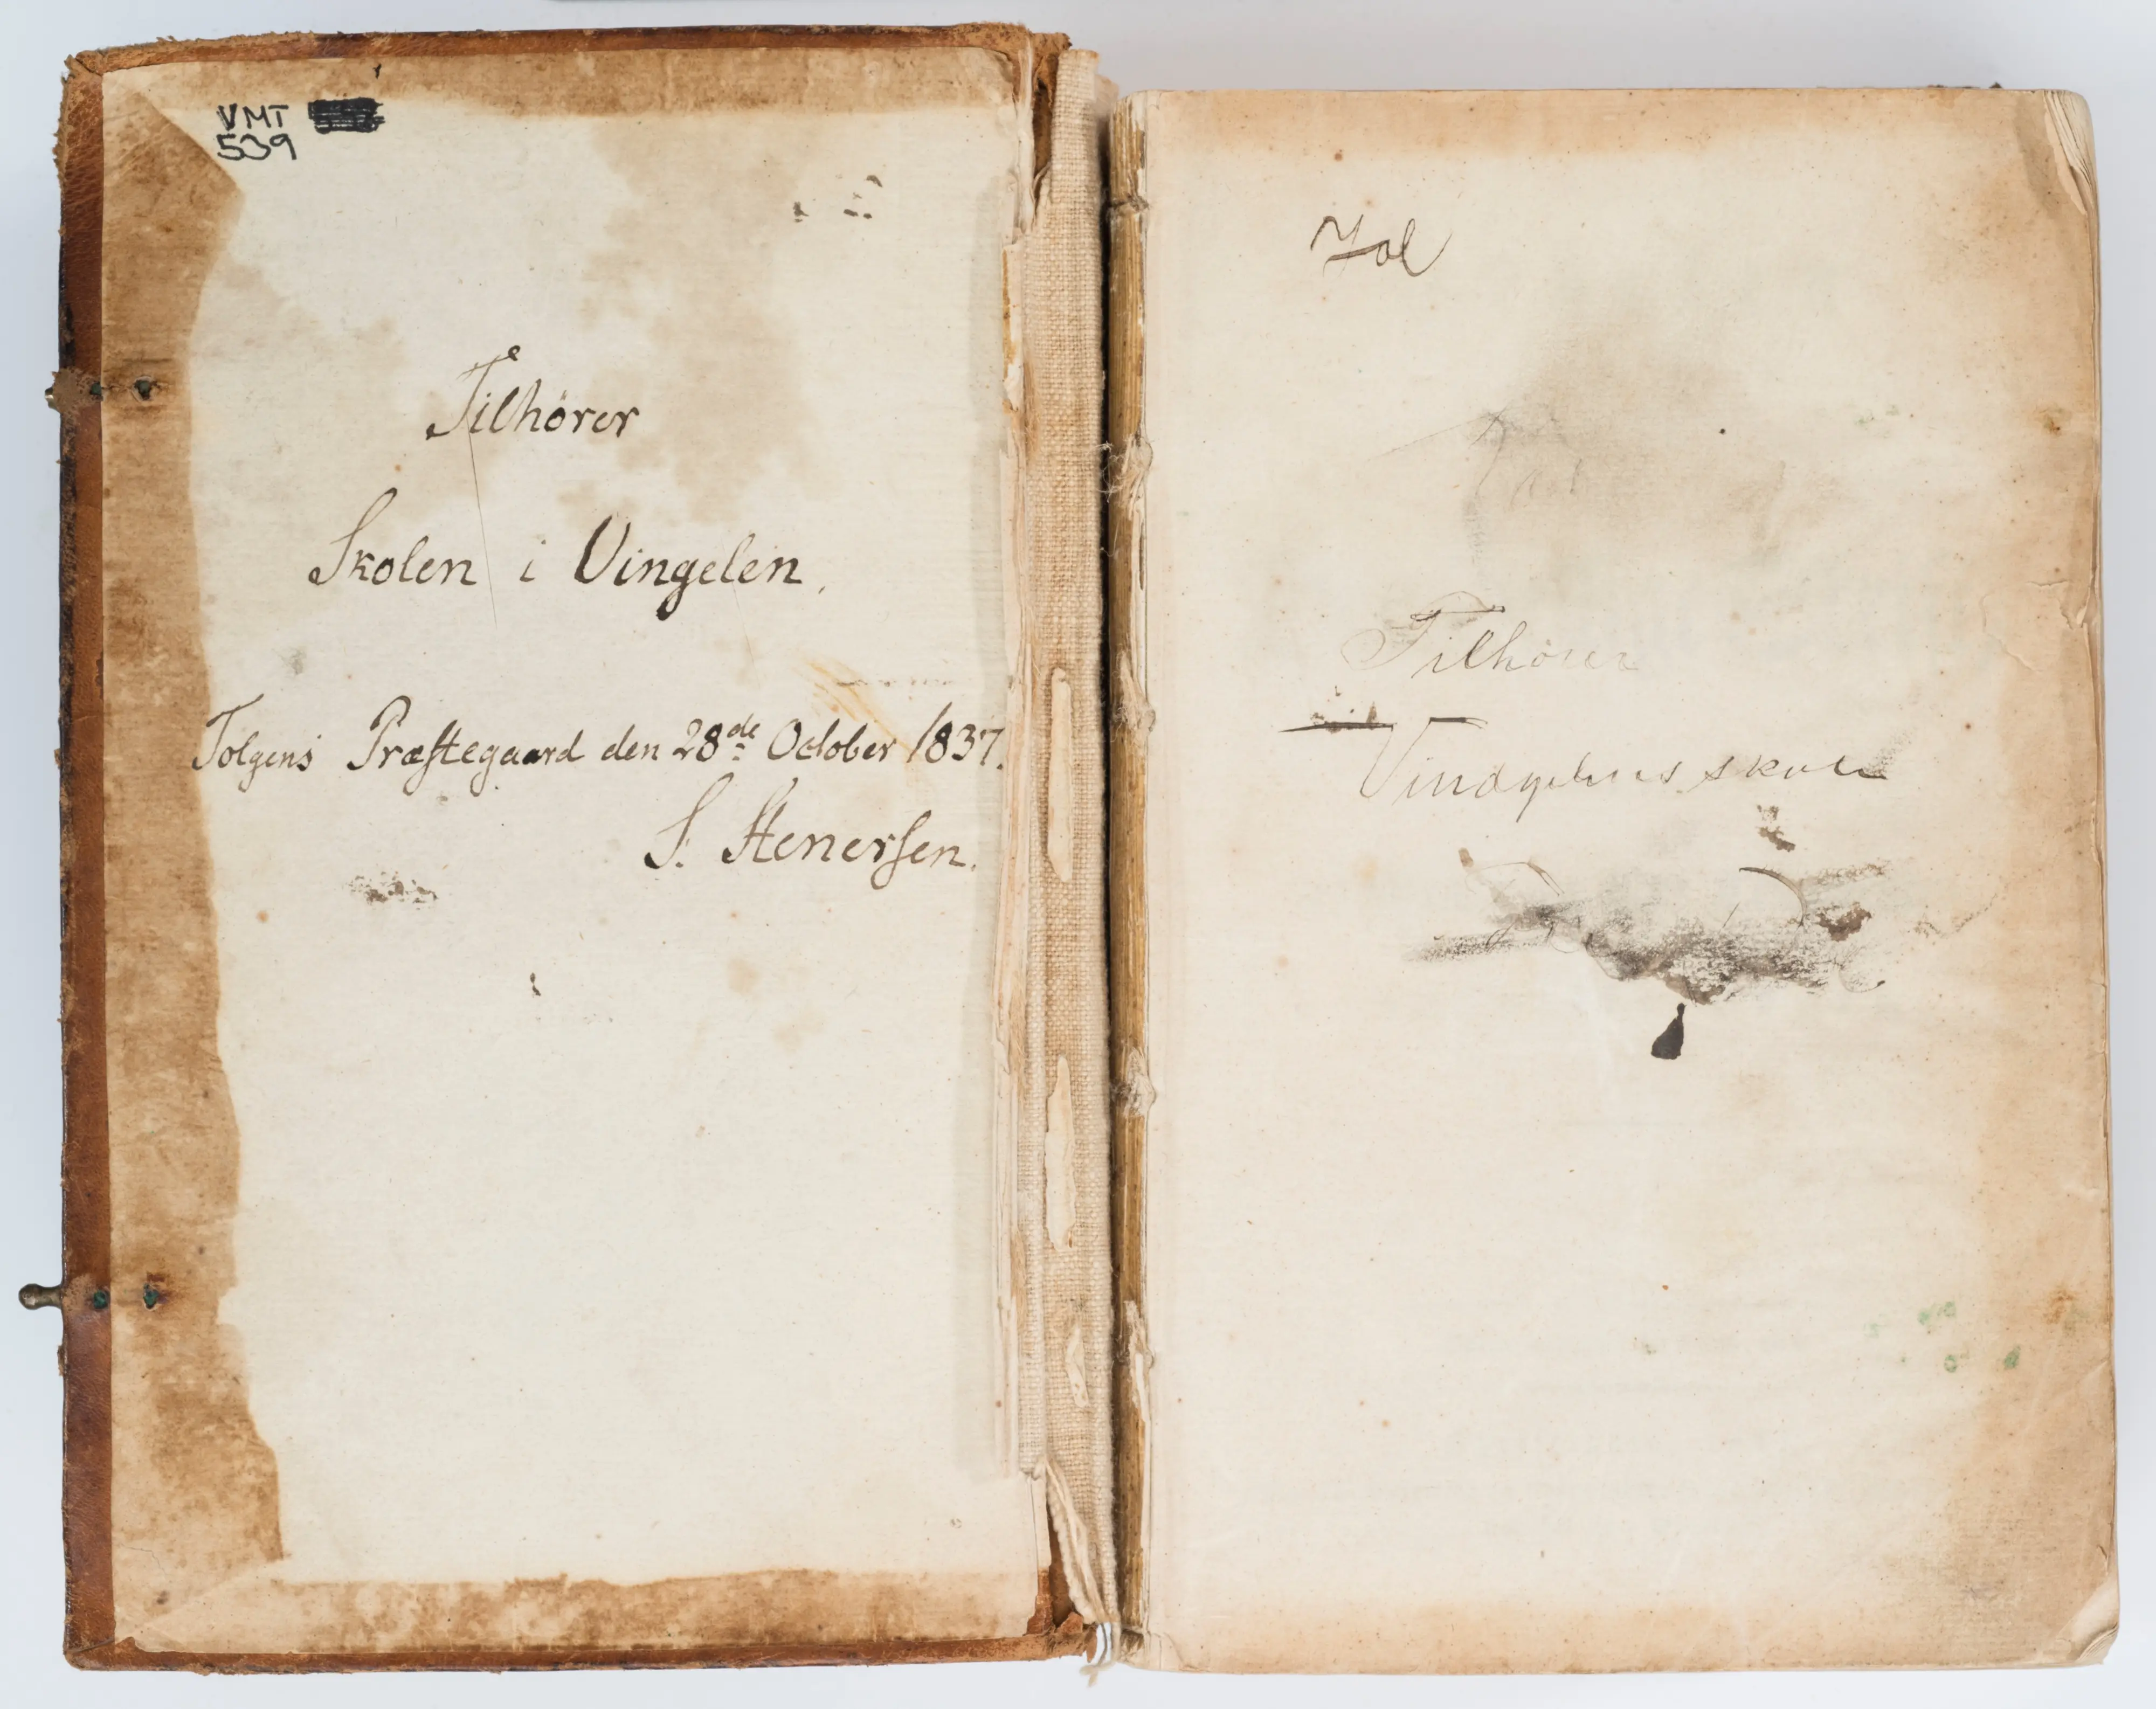 VMT
539
Tilhörer
Skolen i Vingelen.
Tolgens Præstegaard den 28de October 1837.
S. Stenersen.
Tilhörer
Vindgelens skole